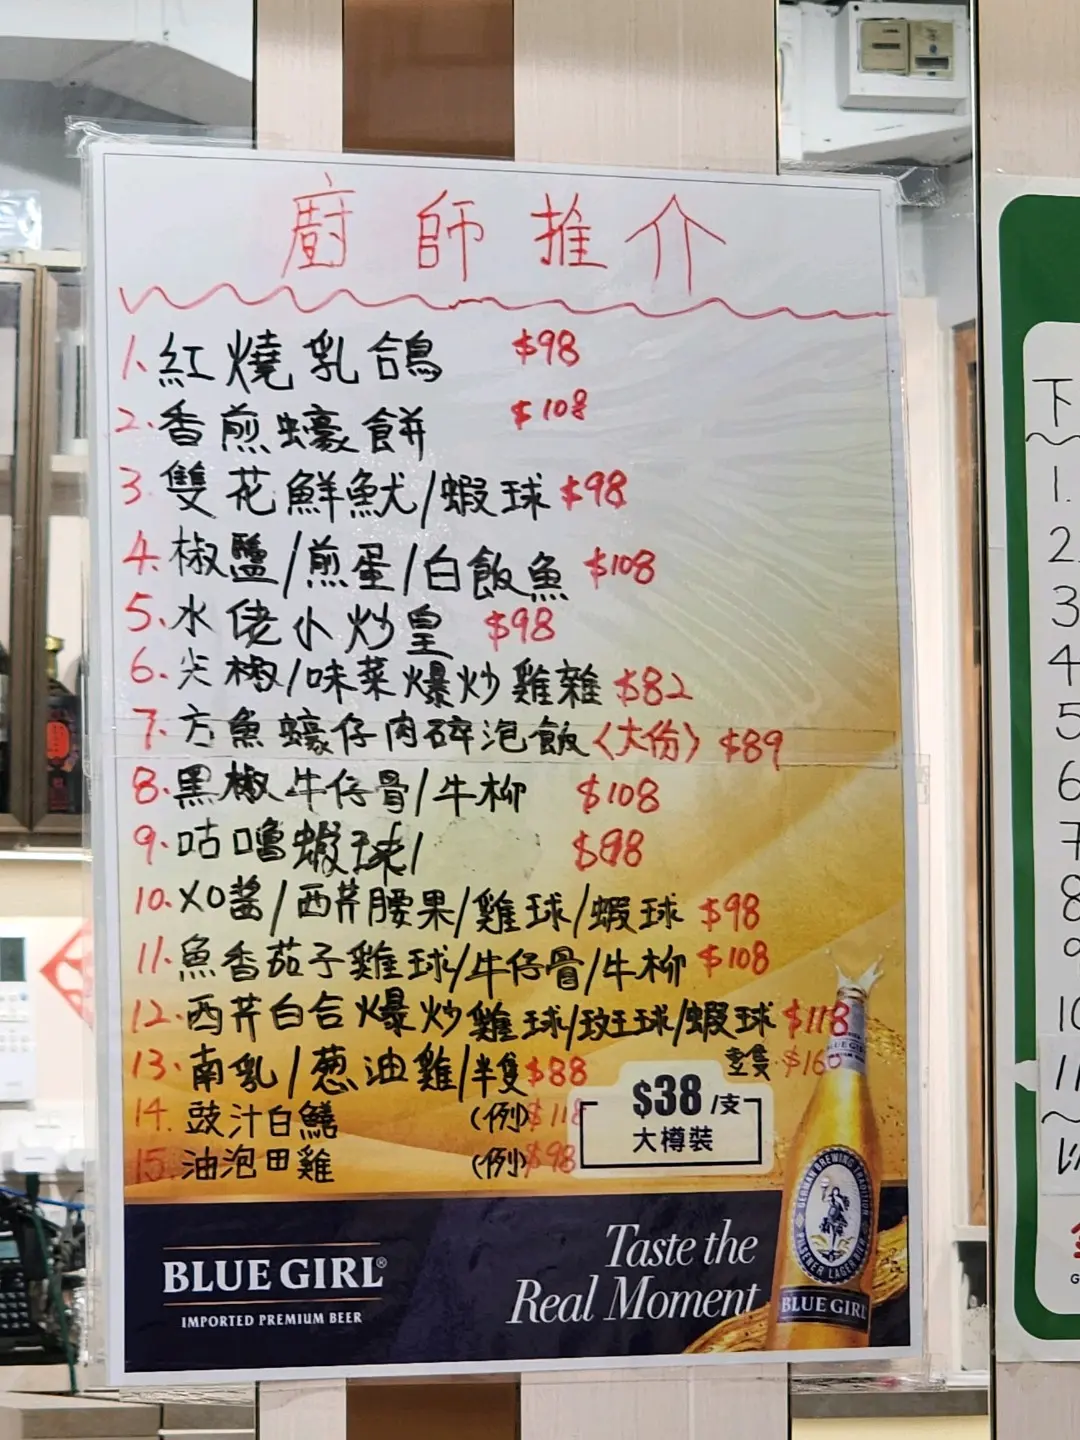 廚師推介
1. 紅燒乳鴿 $98
2. 香煎蠔餅 $108
3. 雙花鮮魷/蝦球 $98
4. 椒鹽/煎蛋/白飯魚 $108
5. 水佬小炒皇 $98
6. 尖椒/味菜爆炒雞雜 $82
7. 方魚蠔仔肉碎泡飯〈大份〉 $89
8. 黑椒牛仔骨/牛柳 $108
9. 咕嚕蝦球/ $98
10. XO醬/西芹腰果/雞球/蝦球 $98
11. 魚香茄子雞球/牛仔骨/牛柳 $108
12. 西芹百合爆炒雞球/斑球/蝦球 $118
13. 南乳/葱油雞/半隻$88 壹隻 $160
14. 豉汁白鱔 (例)$118
15. 油泡田雞 (例)$98
$38/支
大樽裝
BLUE GIRL®
IMPORTED PREMIUM BEER
Taste the
Real Moment
GERMAN BREWING TRADITION
PILSENER LAGER BIER
BLUE GIRL
下
1.
2.
3
4
5
6
7
8
9
10
11